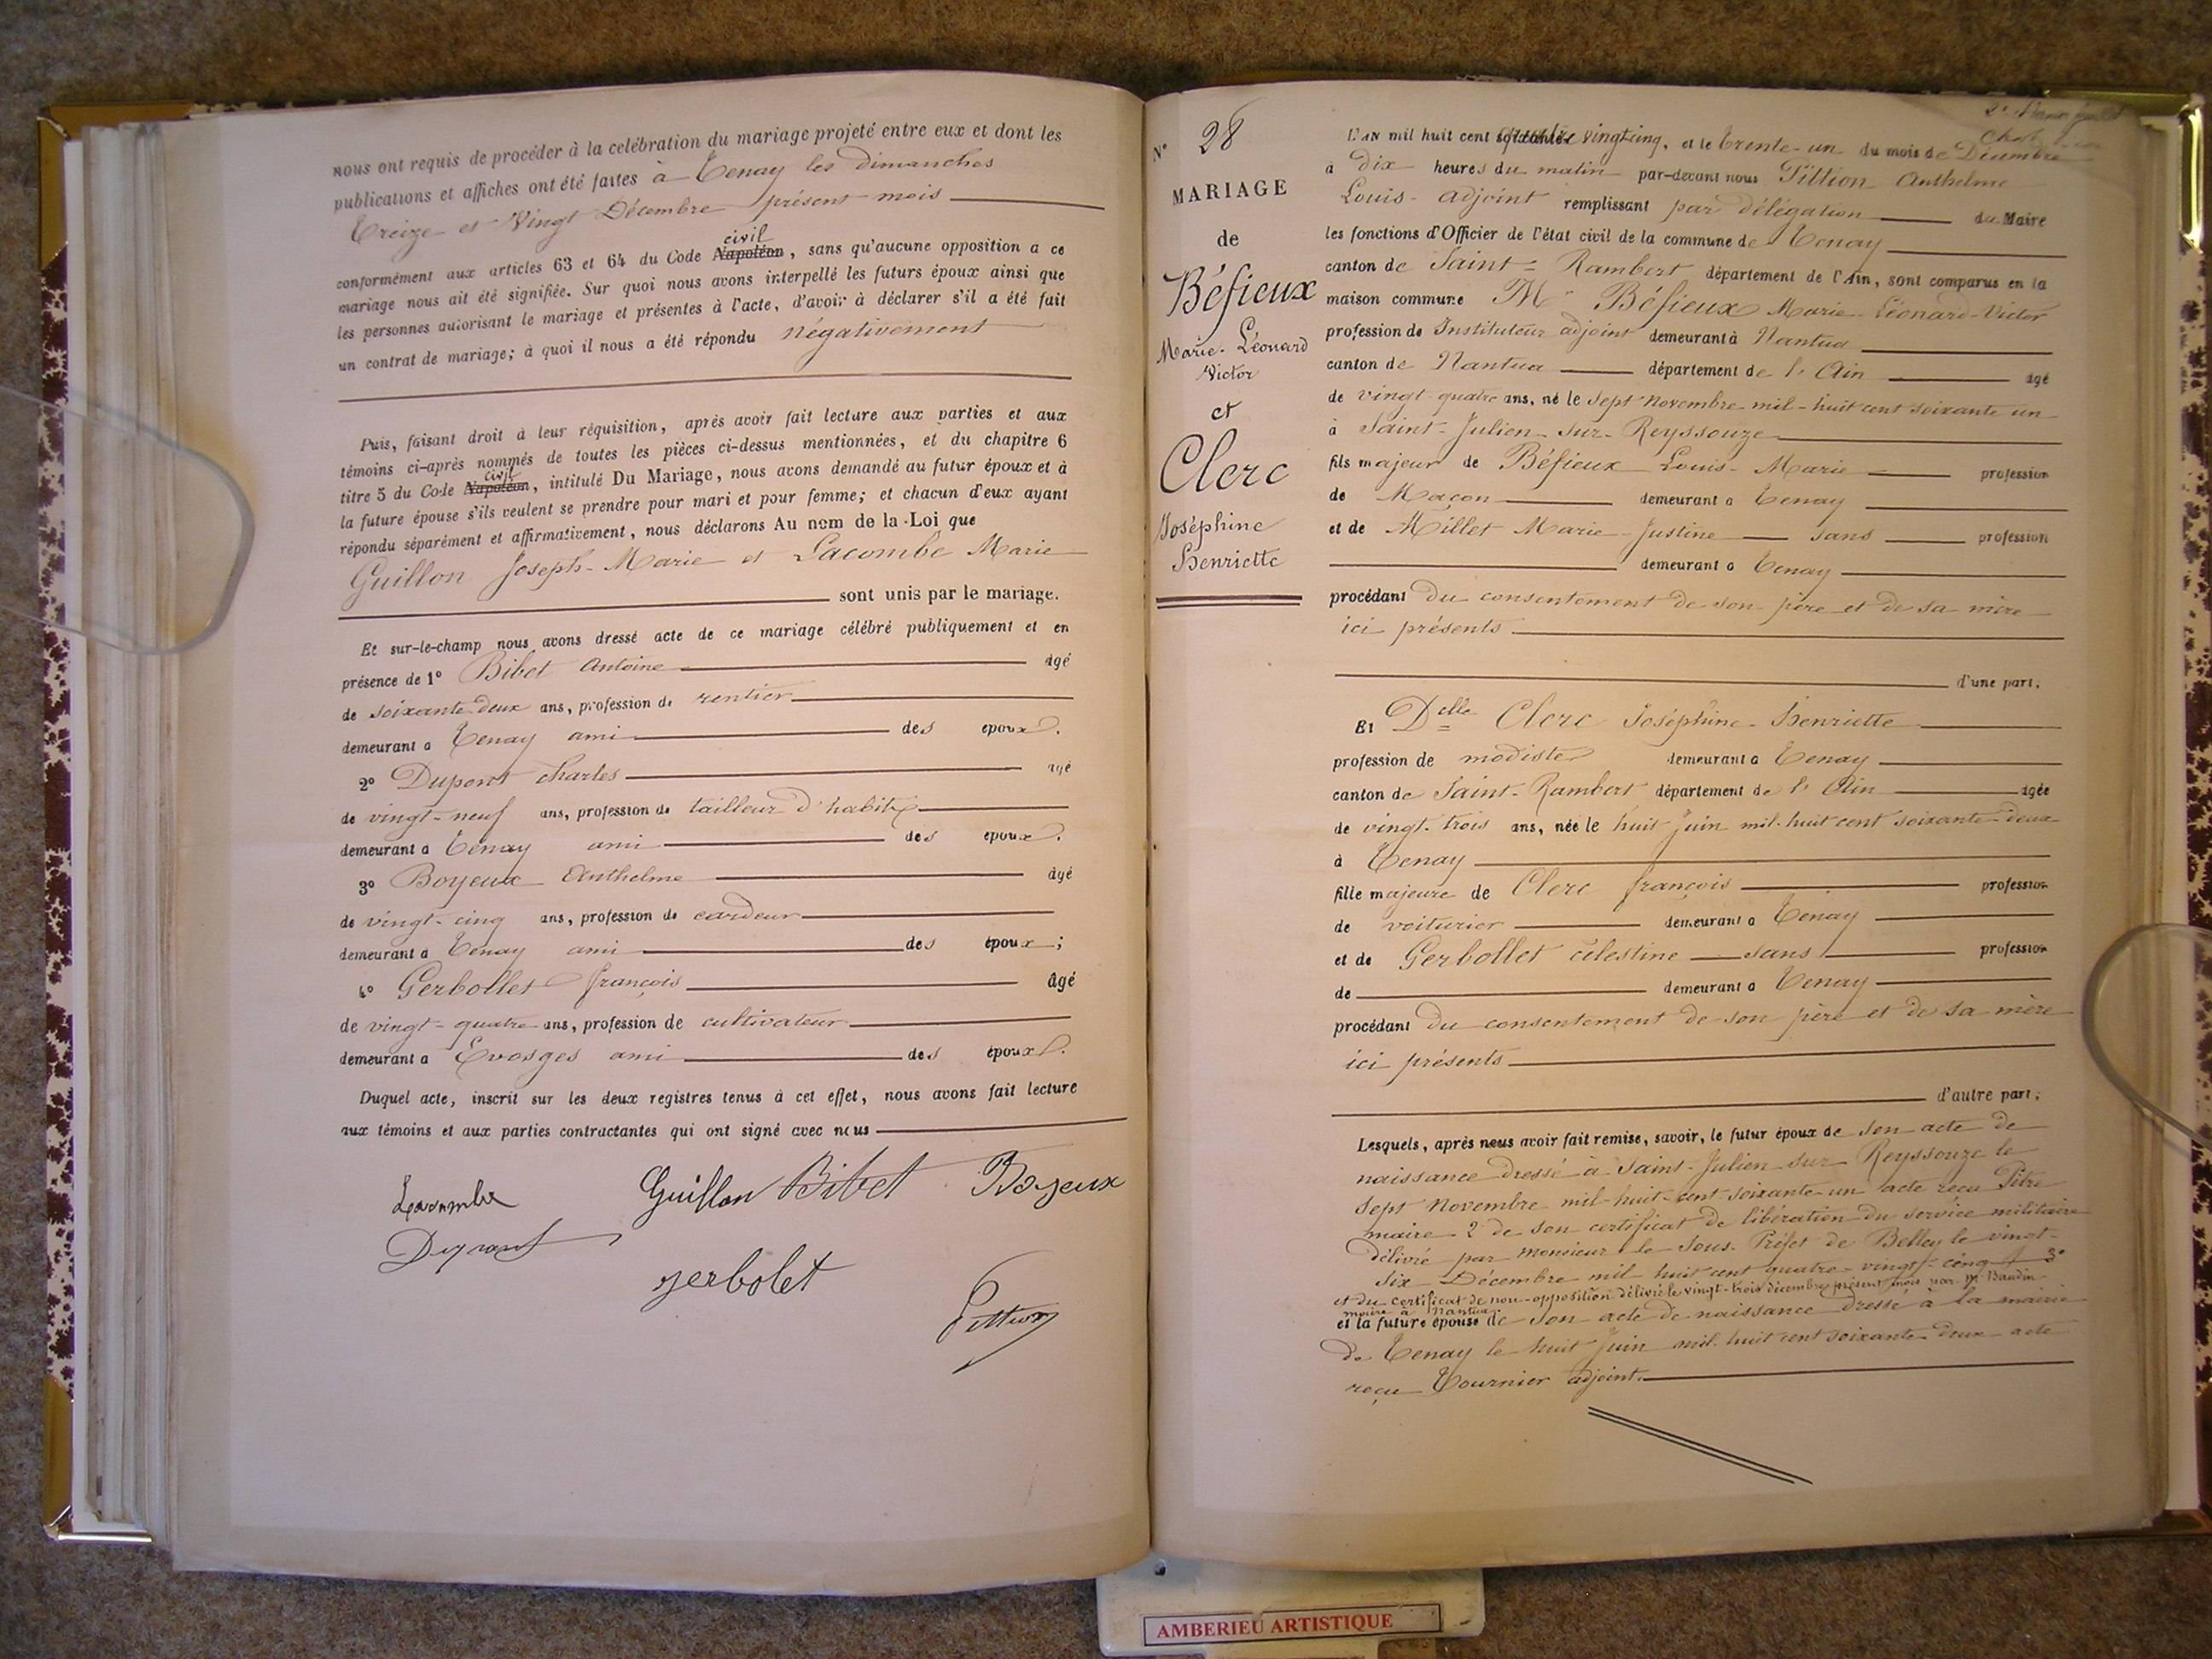 nous ont requis de procéder à la celébration du mariage projeté entre eux et dont les
publications et affiches ont été faites à Tenay les dimanches
Treize et Vingt Décembre présent mois
civil
conformément aux articles 63 et 64 du Code Napoléon, sans qu'aucune opposition a ce
mariage nous ait été signifiée. Sur quoi nous avons interpellé les futurs époux ainsi que
les personnes autorisant le mariage et présentes à l'acte, d'avoir à déclarer s'il a été fait
un contrat de mariage; à quoi il nous a été répondu négativement
Puis, faisant droit à leur réquisition, après avoir fait lecture aux parties et aux
témoins ci-après nommés de toutes les pièces ci-dessus mentionnées, et du chapitre 6
civil
titre 5 du Code Napoléon, intitulé Du Mariage, nous avons demandé au futur époux et à
la future épouse s'ils veulent se prendre pour mari et pour femme; et chacun d'eux ayant
répondu séparément et affirmativement, nous déclarons Au nom de la Loi que
Guillon Joseph-Marie et Lacombe Marie
sont unis par le mariage.
Et sur-le-champ nous avons dressé acte de ce mariage célébré publiquement et en
présence de 1° Bibet Antoine âgé
de soixante-deux ans, profession de rentier
demeurant a Tenay ami des epoux.
2° Dupont Charles agé
de vingt-neuf ans, profession de tailleur d'habits
demeurant a Tenay ami des epoux.
3° Boyeux Anthelme âgé
de vingt-cinq ans, profession de cardeur
demeurant a Tenay ami des époux;
4° Gerbollet françois âgé
de vingt-quatre ans, profession de cultivateur
demeurant a Evosges ami des époux.
Duquel acte, inscrit sur les deux registres tenus à cet effet, nous avons fait lecture
aux témoins et aux parties contractantes qui ont signé avec nous
Lacombe Guillon Bibet Boyeux
Dupont
gerbolet
Pittion
N° 28
MARIAGE
de
Béfieux
Marie-Léonard
Victor
et
Clerc
Joséphine
Henriette
L'AN mil huit cent quatre vingt cinq, et le trente-un du mois de Décembre
à dix heures du matin par-devant nous Pittion Anthelme
Louis-adjoint remplissant par délégation du Maire
les fonctions d'Officier de l'état civil de la commune de Tenay
canton de Saint-Rambert département de l'Ain, sont comparus en la
maison commune Mr Béfieux Marie-Léonard-Victor
profession de Instituteur adjoint demeurant à Nantua
canton de Nantua département de l'Ain âgé
de vingt-quatre ans, né le sept Novembre mil-huit cent soixante un
à Saint-Julien-sur-Reyssouze
fils majeur de Béfieux Louis-Marie profession
de Maçon demeurant a Tenay
et de Millet Marie-Justine sans profession
demeurant a Tenay
procédant du consentement de son père et de sa mère
ici présents
d'une part.
Et Delle Clerc Joséphine-Henriette
profession de modiste demeurant a Tenay
canton de Saint-Rambert département de l'Ain âgée
de vingt-trois ans, née le huit Juin mil-huit cent soixante-deux
à Tenay
fille majeure de Clerc françois profession
de voiturier demeurant a Tenay
et de Gerbollet célestine sans profession
de demeurant a Tenay
procédant du consentement de son père et de sa mère
ici présents
d'autre part;
Lesquels, après nous avoir fait remise, savoir, le futur époux de son acte de
naissance dressé à Saint-Julien-sur Reyssouze le
sept Novembre mil-huit-cent-soixante-un acte reçu Pitre
maire 2° de son certificat de libération du service militaire
délivré par Monsieur le Sous-Préfet de Belley le vingt-
six Décembre mil huit cent quatre-vingt-cinq 3°
et du certificat de non-opposition délivré le vingt-trois décembre présent mois par M. Baudin
maire à Nantua.
et la future épouse de son acte de naissance dressé à la mairie
de Tenay le huit Juin mil-huit cent soixante-deux acte
reçu Tournier adjoint.
AMBERIEU ARTISTIQUE